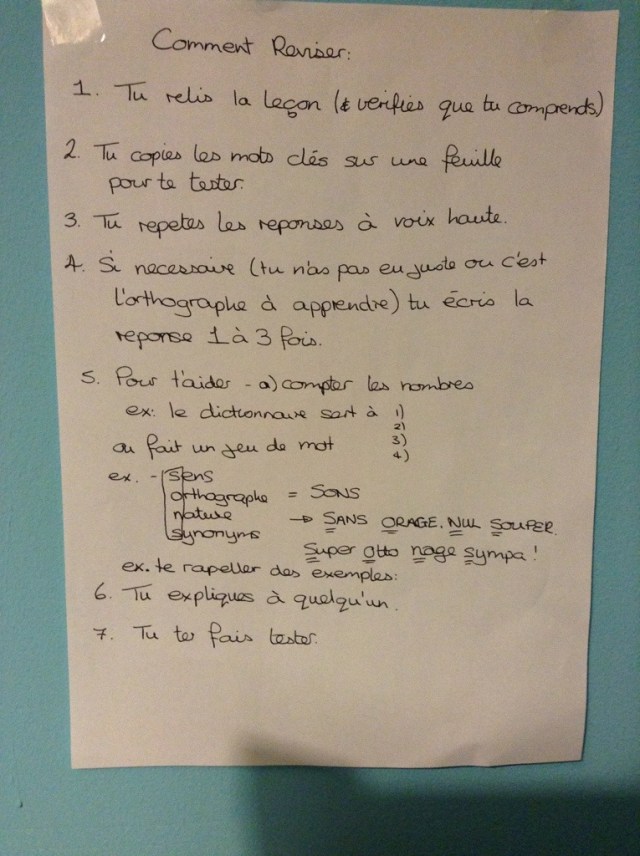 Comment Reviser:
1. Tu relis la leçon (& verifies que tu comprends)
2. Tu copies les mots clés sur une feuille
pour te tester.
3. Tu repetes les reponses à voix haute.
4. Si necessaire (tu n'as pas eu juste ou c'est
l'orthographe à apprendre) tu écris la
reponse 1 à 3 fois.
5. Pour t'aider - a) compter les nombres
ex: le dictionnaire sert à 1)
2)
ou fait un jeu de mot 3)
4)
ex. - sens
orthographe = SONS
nature → SANS ORAGE. NUL SOUPER.
synonyms Super Otto nage sympa!
ex. te rapeller des exemples:
6. Tu expliques à quelqu'un.
7. Tu te fais tester.